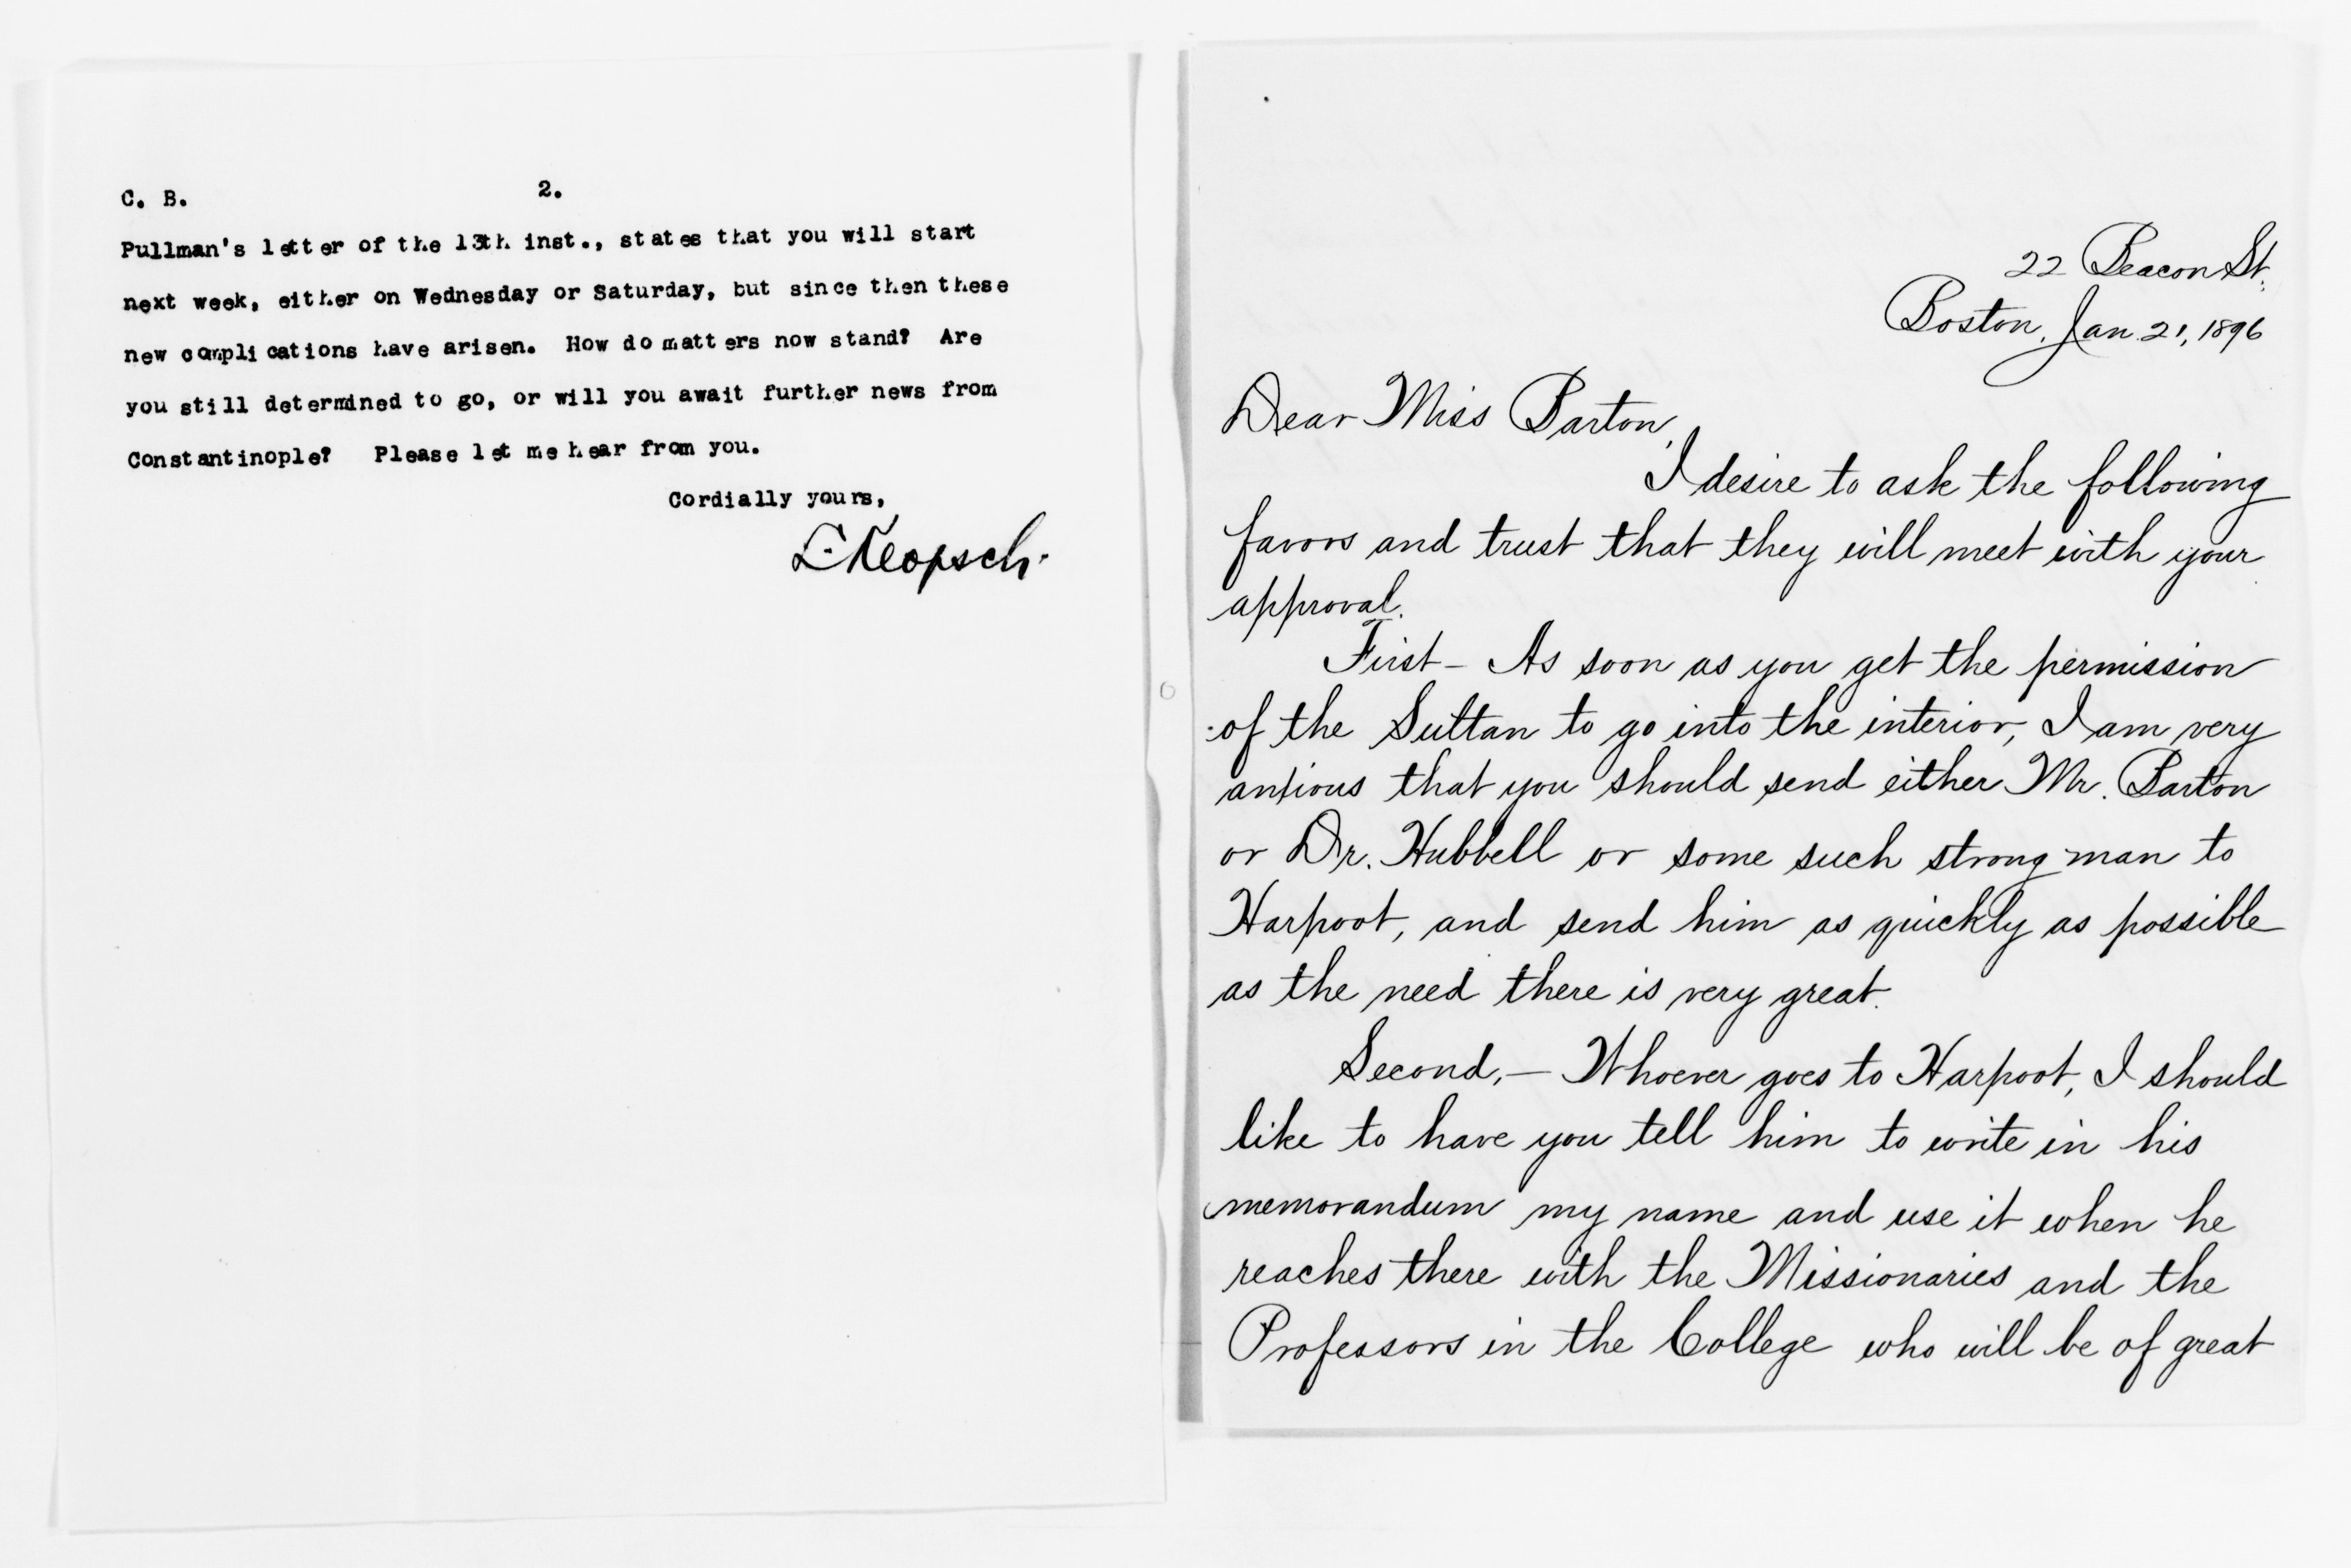 C. B. 2.
Pullman's letter of the 13th inst., states that you will start
next week, either on Wednesday or Saturday, but since then these
new complications have arisen. How do matters now stand? Are
you still determined to go, or will you await further news from
Constantinople? Please let me hear from you.
Cordially yours,
L. Klopsch.
22 Beacon St.
Boston, Jan. 21, 1896
Dear Miss Barton,
I desire to ask the following
favors and trust that they will meet with your
approval.
First - As soon as you get the permission
of the Sultan to go into the interior, I am very
anxious that you should send either Mr. Barton
or Dr. Hubbell or some such strong man to
Harpoot, and send him as quickly as possible
as the need there is very great.
Second, - Whoever goes to Harpoot, I should
like to have you tell him to write in his
memorandum my name and use it when he
reaches there with the Missionaries and the
Professors in the College who will be of great